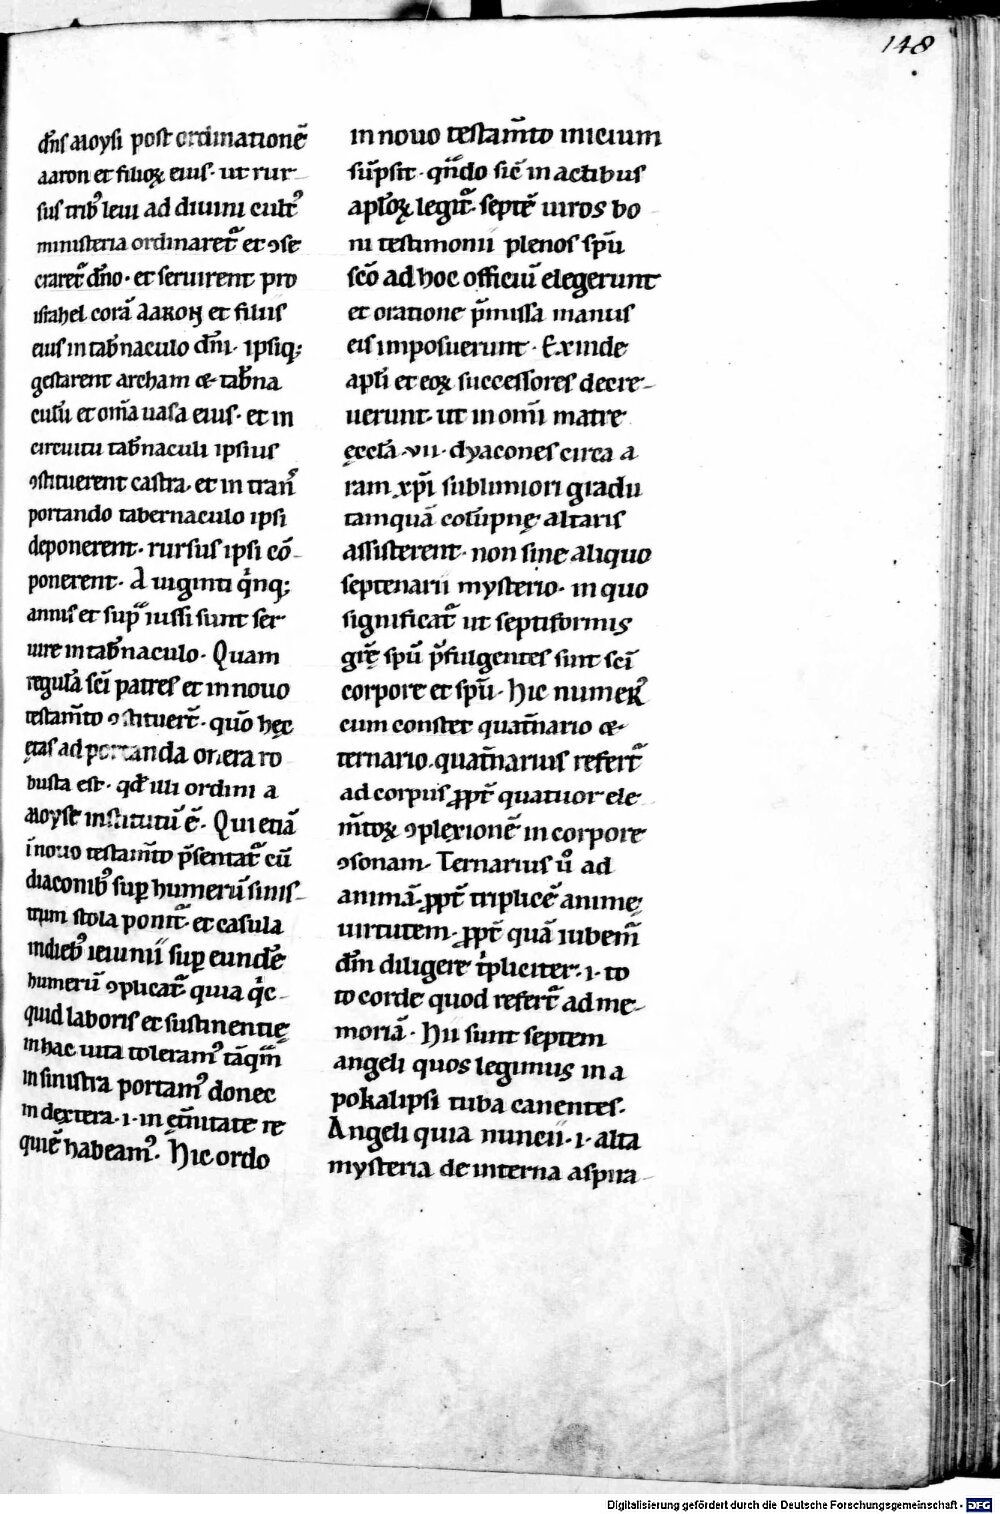 148
dn̄s moysi post ordinationē
aaron et filioꝝ eius· ut rur-
sus tribꝰ leui ad diuini cultꝰ
ministeria ordinaretᷣ et ꝯse
craretᷣ dn̄o· et seruirent pro
israhel corā AARON et filiis
eius in tab̄naculo dn̄i· ipsiqꝫ
gestarent archam & tab̄na
culū et om̄a uasa eius· et in
circuitu tab̄naculi ipsius
ꝯstituerent castra· et in tran̄s
portando tabernaculo ipsi
deponerent· rursus ipsi cō-
ponerent· A uiginti qͥnqꝫ
annis et supᷓ iussi sunt ser-
uire in tab̄naculo· Quam
regulā sc̄i patres et in nouo
testam̄to ꝯstituer̄t· quō hęc
ętas ad portanda onera ro
busta est· qd̄ illi ordini a
moyse institutū ē· Qui etiā
ī nouo testam̄to p̄sentatᷣ cū
diaconibꝰ suꝑ humerū sinis-
trum stola ponitᷣ· et casula
in diebꝰ ieiunii suꝑ eundē
humerū ꝯplicatᷣ quia qͥc-
quid laboris et sustinentię
in hac uita toleramꝰ tāqᷓm
in sinistra portamꝰ donec
in dextera· i· in ęt̄nitate re
quiē habeamꝰ· Hic ordo
in nouo testam̄to inicium
sūpsit· qn̄do sic̄ in actibus
apl̄oꝝ legitᷣ· septē uiros bo
ni testimonii plenos spū
sc̄o ad hoc officiū elegerunt
et oratione p̄missa manus
eis imposuerunt· Exinde
apl̄i et eoꝝ successores decre-
uerunt· ut in om̄i matre
ęccl̄a ·vii· dyacones circa a
ram xp̄i sublimiori gradu
tamquā colūpnę altaris
assisterent· non sine aliquo
septenarii mysterio· in quo
significatᷣ ut septiformis
grē spū p̄fulgentes sint sc̄i
corpore et spū· Hic numerꝰ
cum constet quat̄nario &
ternario· quat̄narius refertᷣ
ad corpus ꝓpt̄ quatuor ele
m̄toꝝ ꝯplexionē in corpore
ꝯsonam· Ternarius u̓o ad
animā· ꝓpt̄ triplicē animę
uirtutem· ꝓpt̄ quā iubem̄
dm̄ diligere tͥpliciter· i· to
to corde quod refertᷣ ad me-
moriā· Hii sunt septem
angeli quos legimus in a
pokalipsi tuba canentes·
Angeli quia nuncii· i· alta
mysteria de interna aspira-
Digitalisierung gefördert durch die Deutsche Forschungsgemeinschaft - DFG